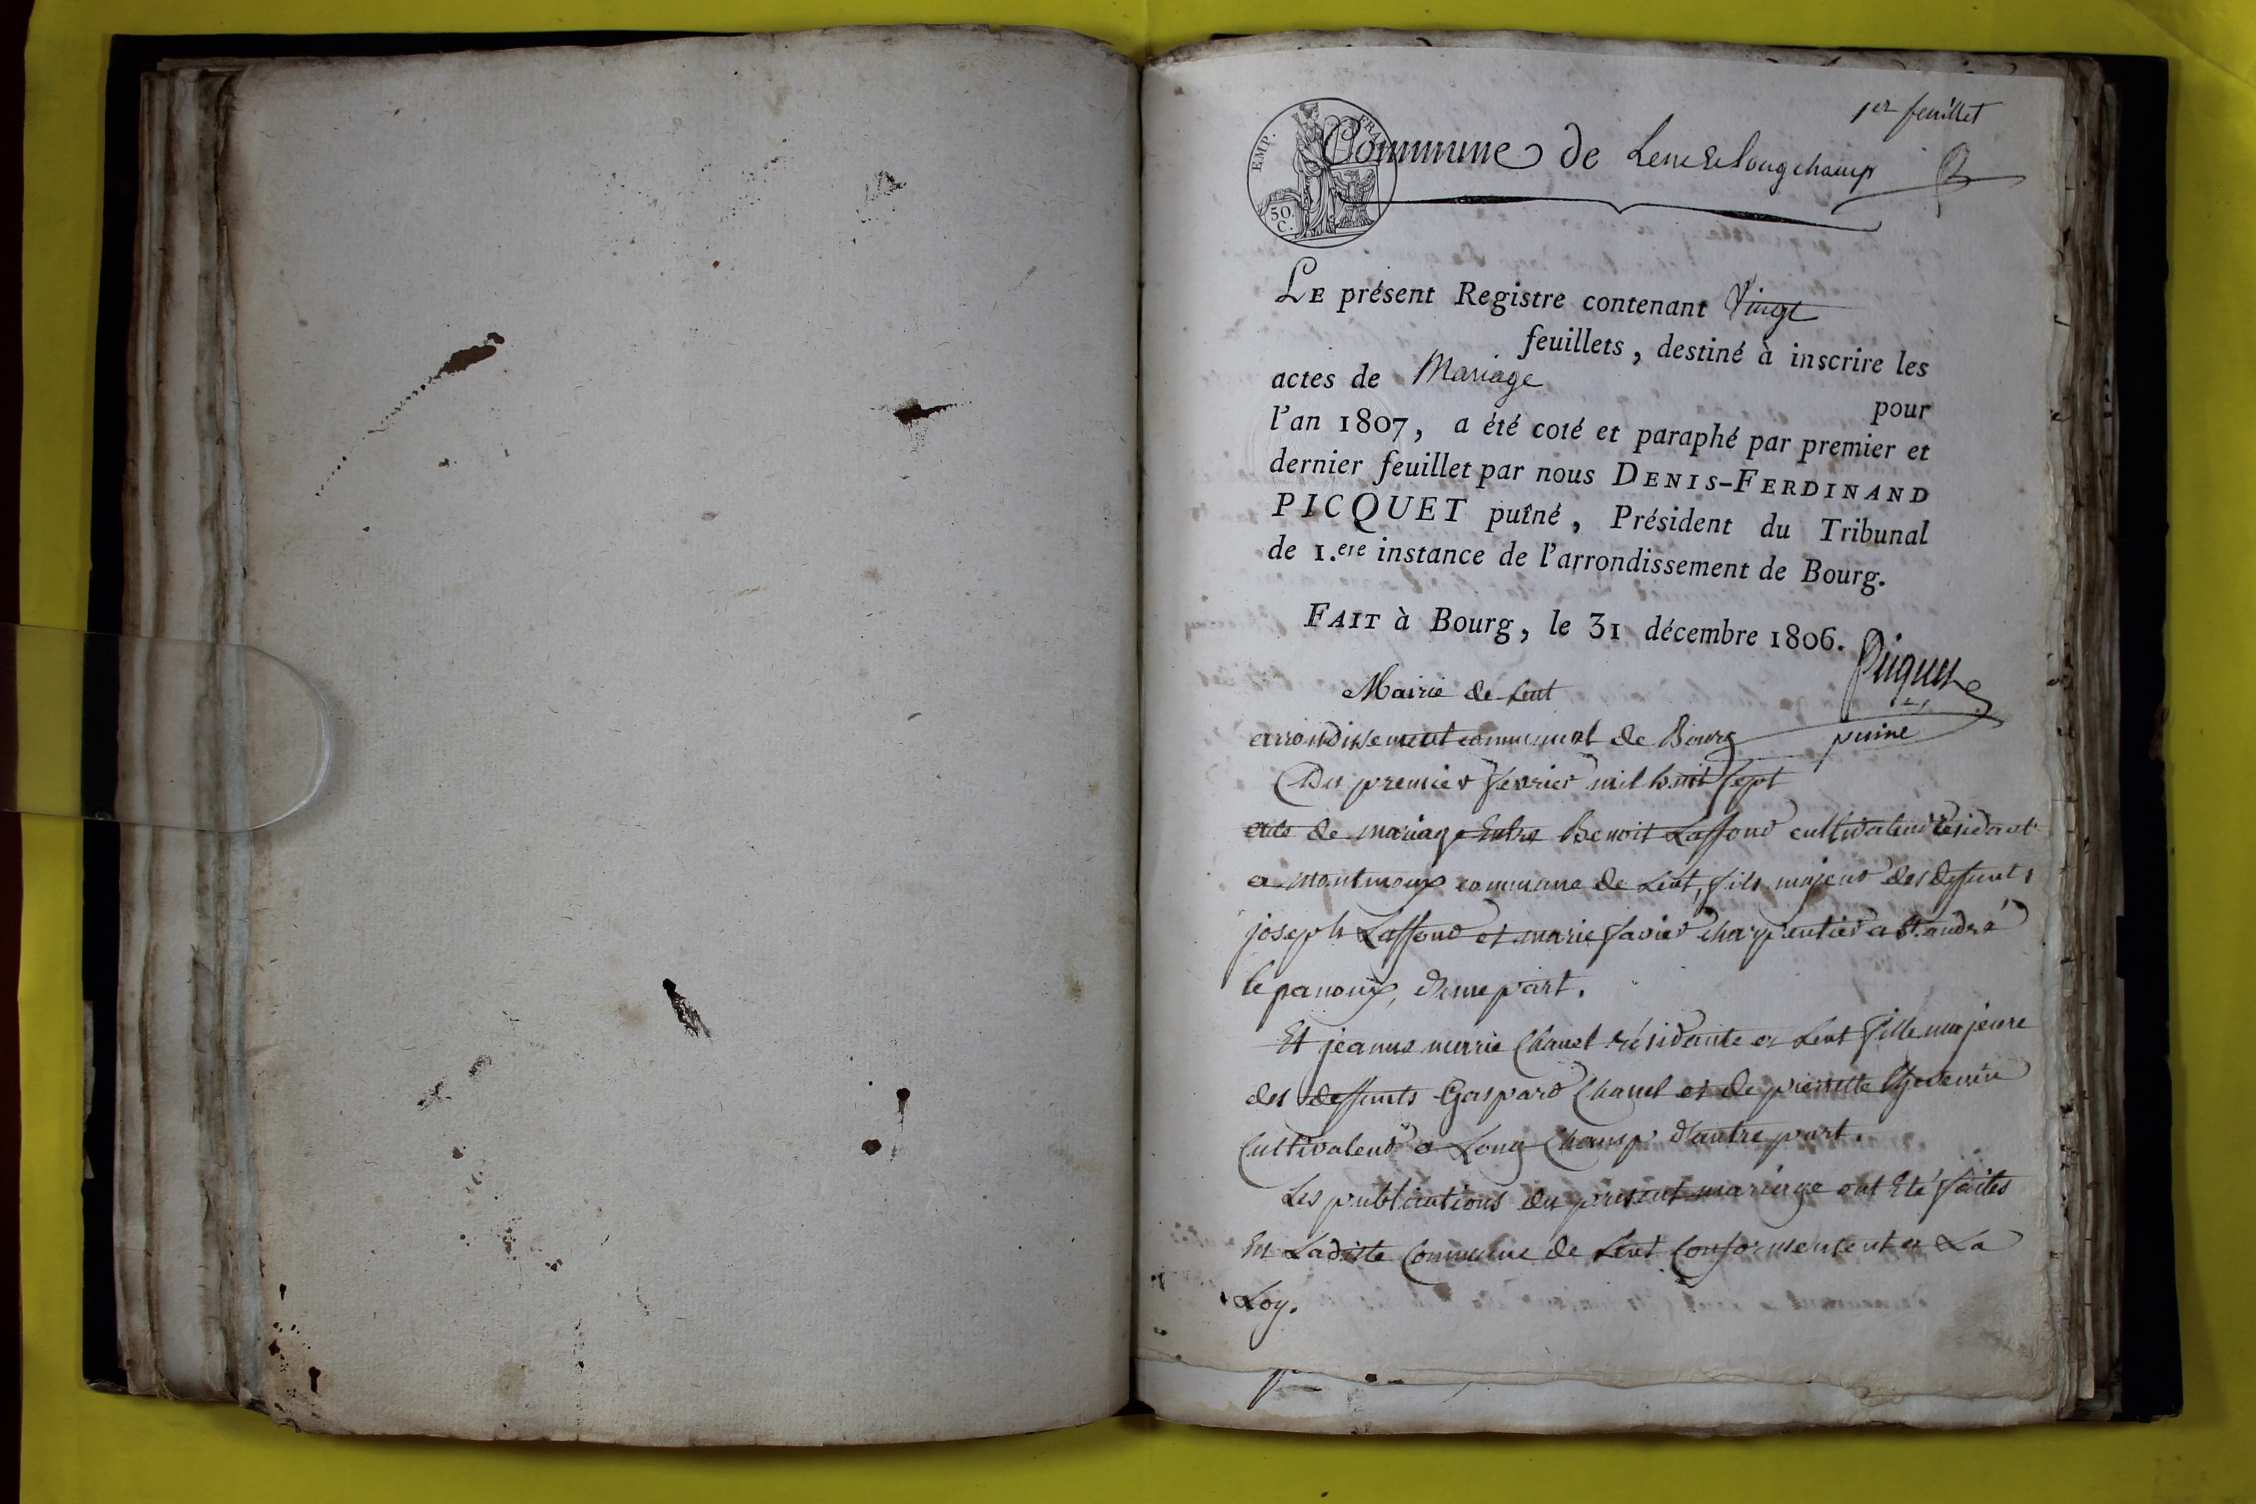 1er feuillet
EMP. FRAN
50. C.
Commune de Lent & longchamp
LE présent Registre contenant Vingt
feuillets, destiné à inscrire les
actes de Mariage
pour
l'an 1807, a été coté et paraphé par premier et
dernier feuillet par nous DENIS-FERDINAND
PICQUET puîné, Président du Tribunal
de 1.ere instance de l'arrondissement de Bourg.
FAIT à Bourg, le 31 décembre 1806.
Picquet
puiné
Mairie de Lent
arrondissement communal de Bourg
Du premier fevrier mil huit sept
acte de mariage Entre Benoit Laffond cultivateur résidant
a montmoux commune de Lent, fils majeur des deffunts
joseph Laffond et marie favier charpentier a St. andré
le panoux, d'une part.
Et jeanne marie Chanel résidante a Lent fille majeure
des deffunts Gaspard Chanel et de pierrette thevenin
Cultivateur a Long Champ d'autre part.
Les publications du présent mariage ont Eté faites
En Laditte Commune de Lent Conformement a La
Loy.